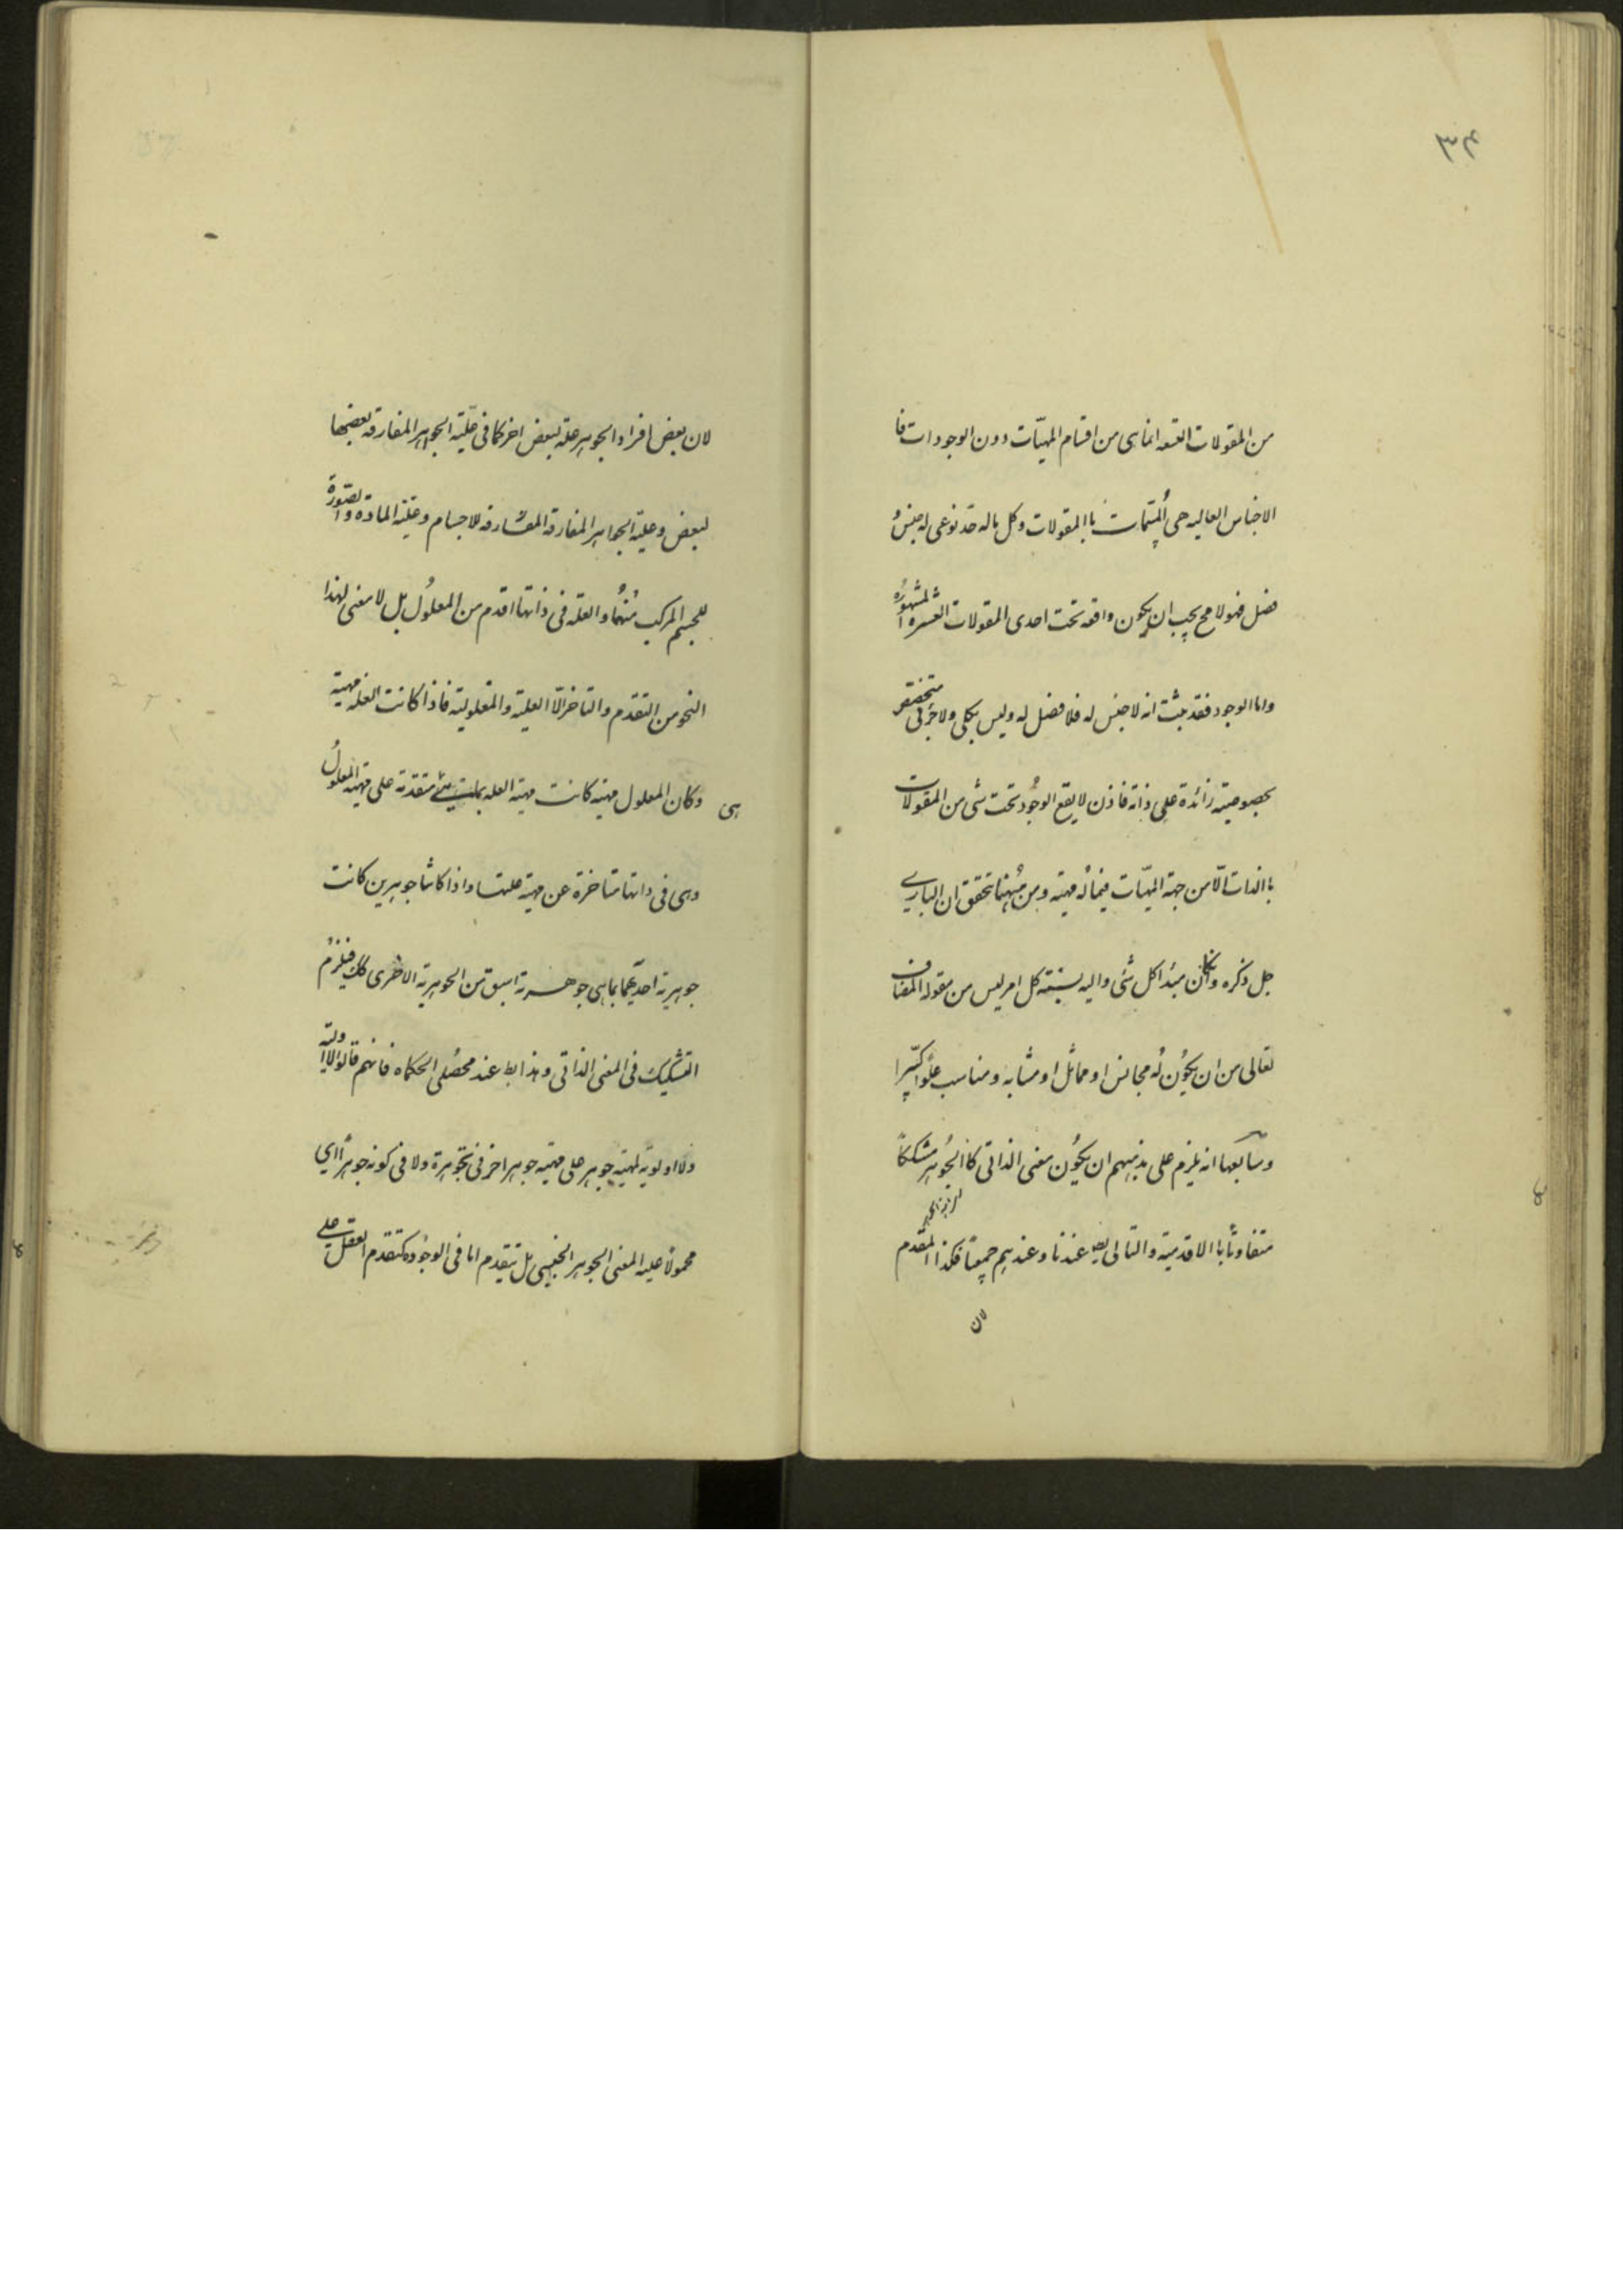 ٣٤
من المقولات التسعه انما هى من اقسام المهيّات دون الوجودات فا
الاجناس العاليه هى المسمّات باالمقولات وكل ماله حد نوعى له جنس و
فصل فهو لا مح يجب ان يكون واقعه تحت احدى المقولات العشره المشهوره
واما الوجود فقد ثبت انه لا جنس له فلا فصل له وليس بكلى ولا جزئى متخصص
بخصوصيته زائدة على ذاته فاذن لا يقع الوجُود تحت شى من المقولات
باالذات الّا من جهة المهيّات فيما له مهيته ومن هيهنا تحقق ان البارى
جل ذكره وان كان مبدا كل شئ واليه نسبته كل امر ليس من مقوله المضاف
تعالى من ان يكوُن له مجانس او مماثل او مشابه ومناسب علوا كبيّرا
وسابعها انه يلزم على مذهبهم ان يكوُن معنى الذاتى كاالجوُهر مشككاً
متفاوتاً باالاقدميته والتالى بط عندنا وعندهم جميعاً فكذا المقدم
لان
لان بعض افراد الجوهر علة لبعض اخر كما فى علّيته الجواهر المفارقه بعضها
لبعض وعلية الجواهر المفارقه المفارقه للاجسام وعلية المادة والصّورة
للجسم المركب منهُما والعلّه فى ذاتها اقدم من المعلوُل بل لا معنى لهذا
النحو من التقدم والتاخر الّا العليته والمعلوليته فاذا كانت العله مهيته
وكان المعلول مهيته كانت مهيته العله بما هى متقدمة على مهيته المعلوُل
هى
وهى فى ذاتها متاخرة عن مهيته علتها واذا كانتا جوهرين كانت
جوهرية احديهما بما هى جوهرية اسبق من الجوهرية الاخرى كك فيلزم
التشكيك فى المعنى الذاتى وهذا بط عند محصّلى الحكماء فانهم قالوا لا اولية
ولا اولويّه لمهيته جوهر على مهيته جوهر اخر فى تجوهره ولا فى كونه جوهراً اى
محمولاً عليه المعنى الجوهر الجنسى بل يتقدم اما فى الوجوُد كتقدم العقل على